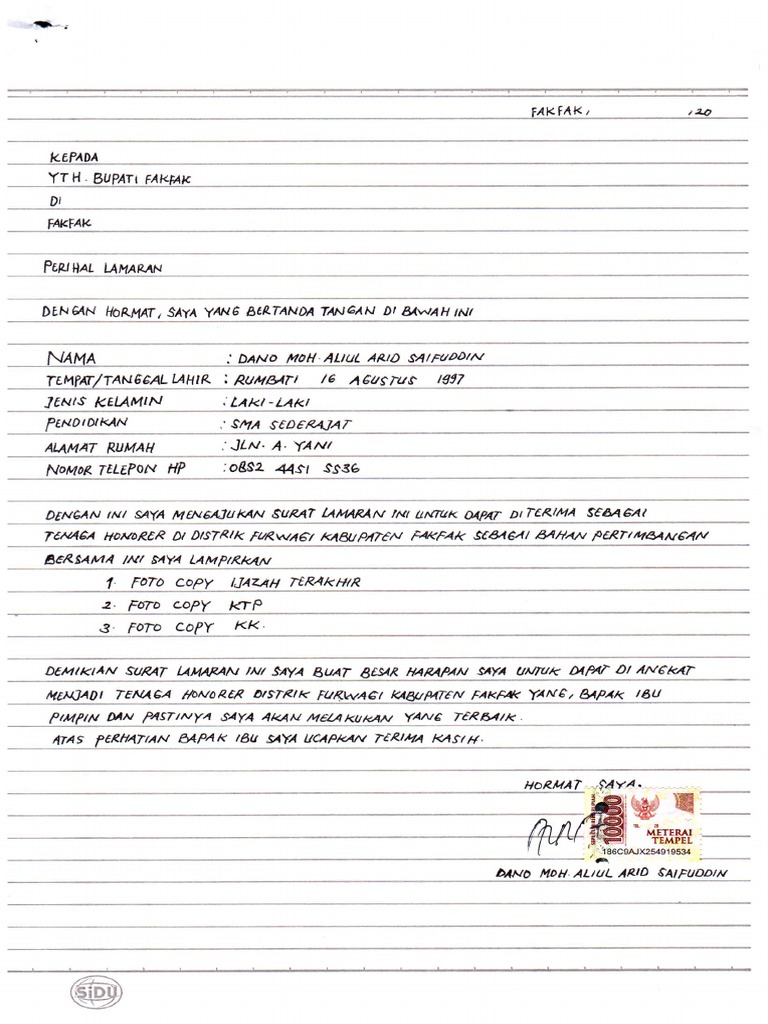 FAKFAK, ,20
KEPADA
YTH. BUPATI FAKFAK
DI
FAKFAK
PERIHAL LAMARAN
DENGAN HORMAT, SAYA YANG BERTANDA TANGAN DI BAWAH INI
NAMA : DANO MOH. ALIUL ARID SAIFUDDIN
TEMPAT/TANGGAL LAHIR : RUMBATI 16 AGUSTUS 1997
JENIS KELAMIN : LAKI-LAKI
PENDIDIKAN : SMA SEDERAJAT
ALAMAT RUMAH : JLN. A. YANI
NOMOR TELEPON HP : 0852 4451 5536
DENGAN INI SAYA MENGAJUKAN SURAT LAMARAN INI UNTUK DAPAT DI TERIMA SEBAGAI
TENAGA HONORER DI DISTRIK FURWAGI KABUPATEN FAKFAK SEBAGAI BAHAN PERTIMBANGAN
BERSAMA INI SAYA LAMPIRKAN
1. FOTO COPY IJAZAH TERAKHIR
2. FOTO COPY KTP
3. FOTO COPY KK.
DEMIKIAN SURAT LAMARAN INI SAYA BUAT BESAR HARAPAN SAYA UNTUK DAPAT DI ANGKAT
MENJADI TENAGA HONORER DISTRIK FURWAGI KABUPATEN FAKFAK YANG, BAPAK IBU
PIMPIN DAN PASTINYA SAYA AKAN MELAKUKAN YANG TERBAIK.
ATAS PERHATIAN BAPAK IBU SAYA UCAPKAN TERIMA KASIH.
HORMAT SAYA.
10000
METERAI
TEMPEL
186C9AJX254919534
DANO MOH. ALIUL ARID SAIFUDDIN
SiDU